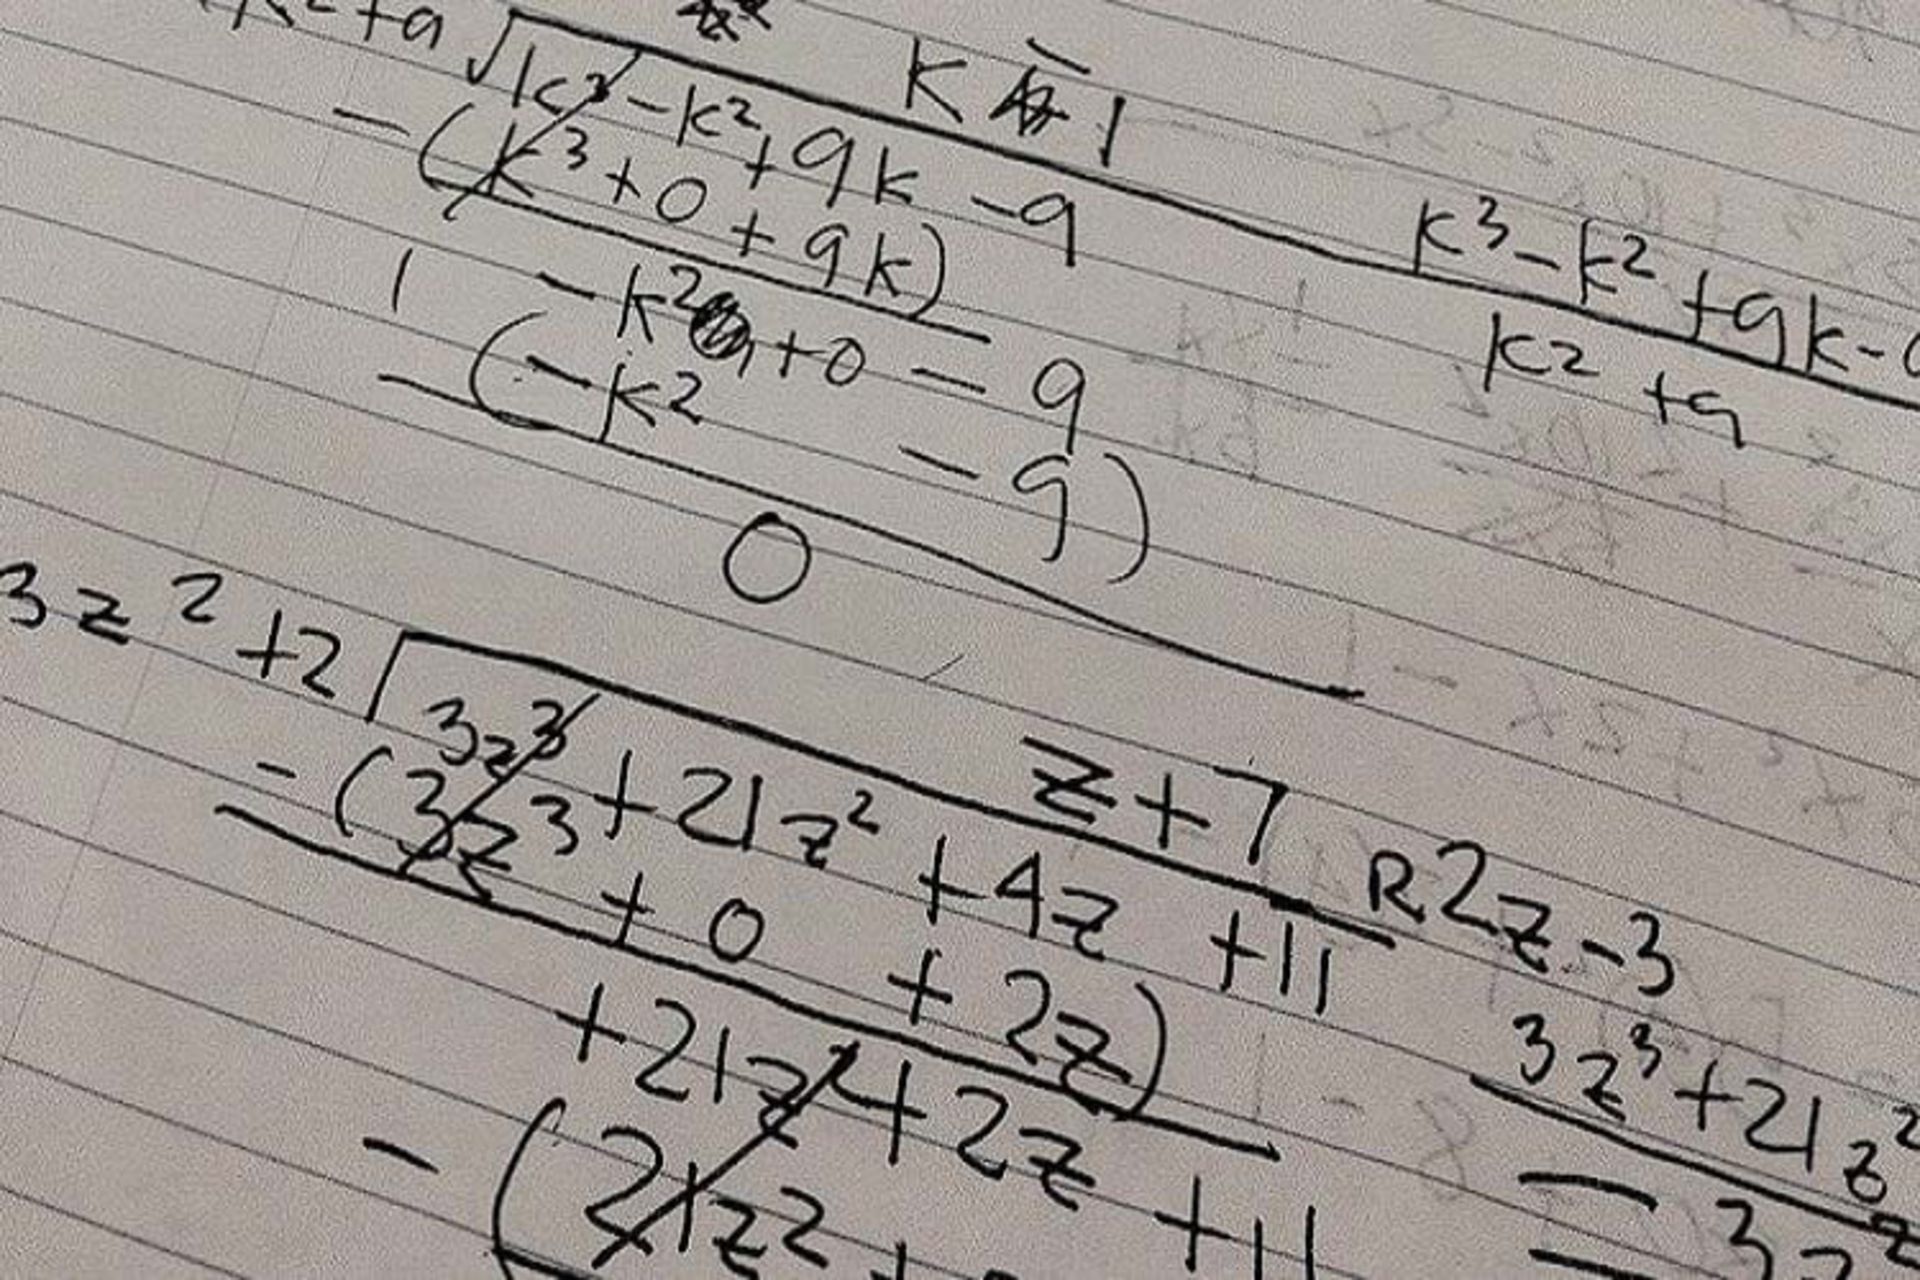 K - 1
k²+9 √ k³ - k² + 9k - 9
- ( k³ + 0 + 9k )
- k² + 0 - 9
- ( - k² - 9 )
0
k³ - k² + 9k -
k² + 9
z + 7 R 2z - 3
3z² + 2 √ 3z³ + 21z² + 4z + 11
- ( 3z³ + 0 + 2z )
+ 21z² + 2z + 11
- ( 21z²
3z³ + 21z²
= 3z²